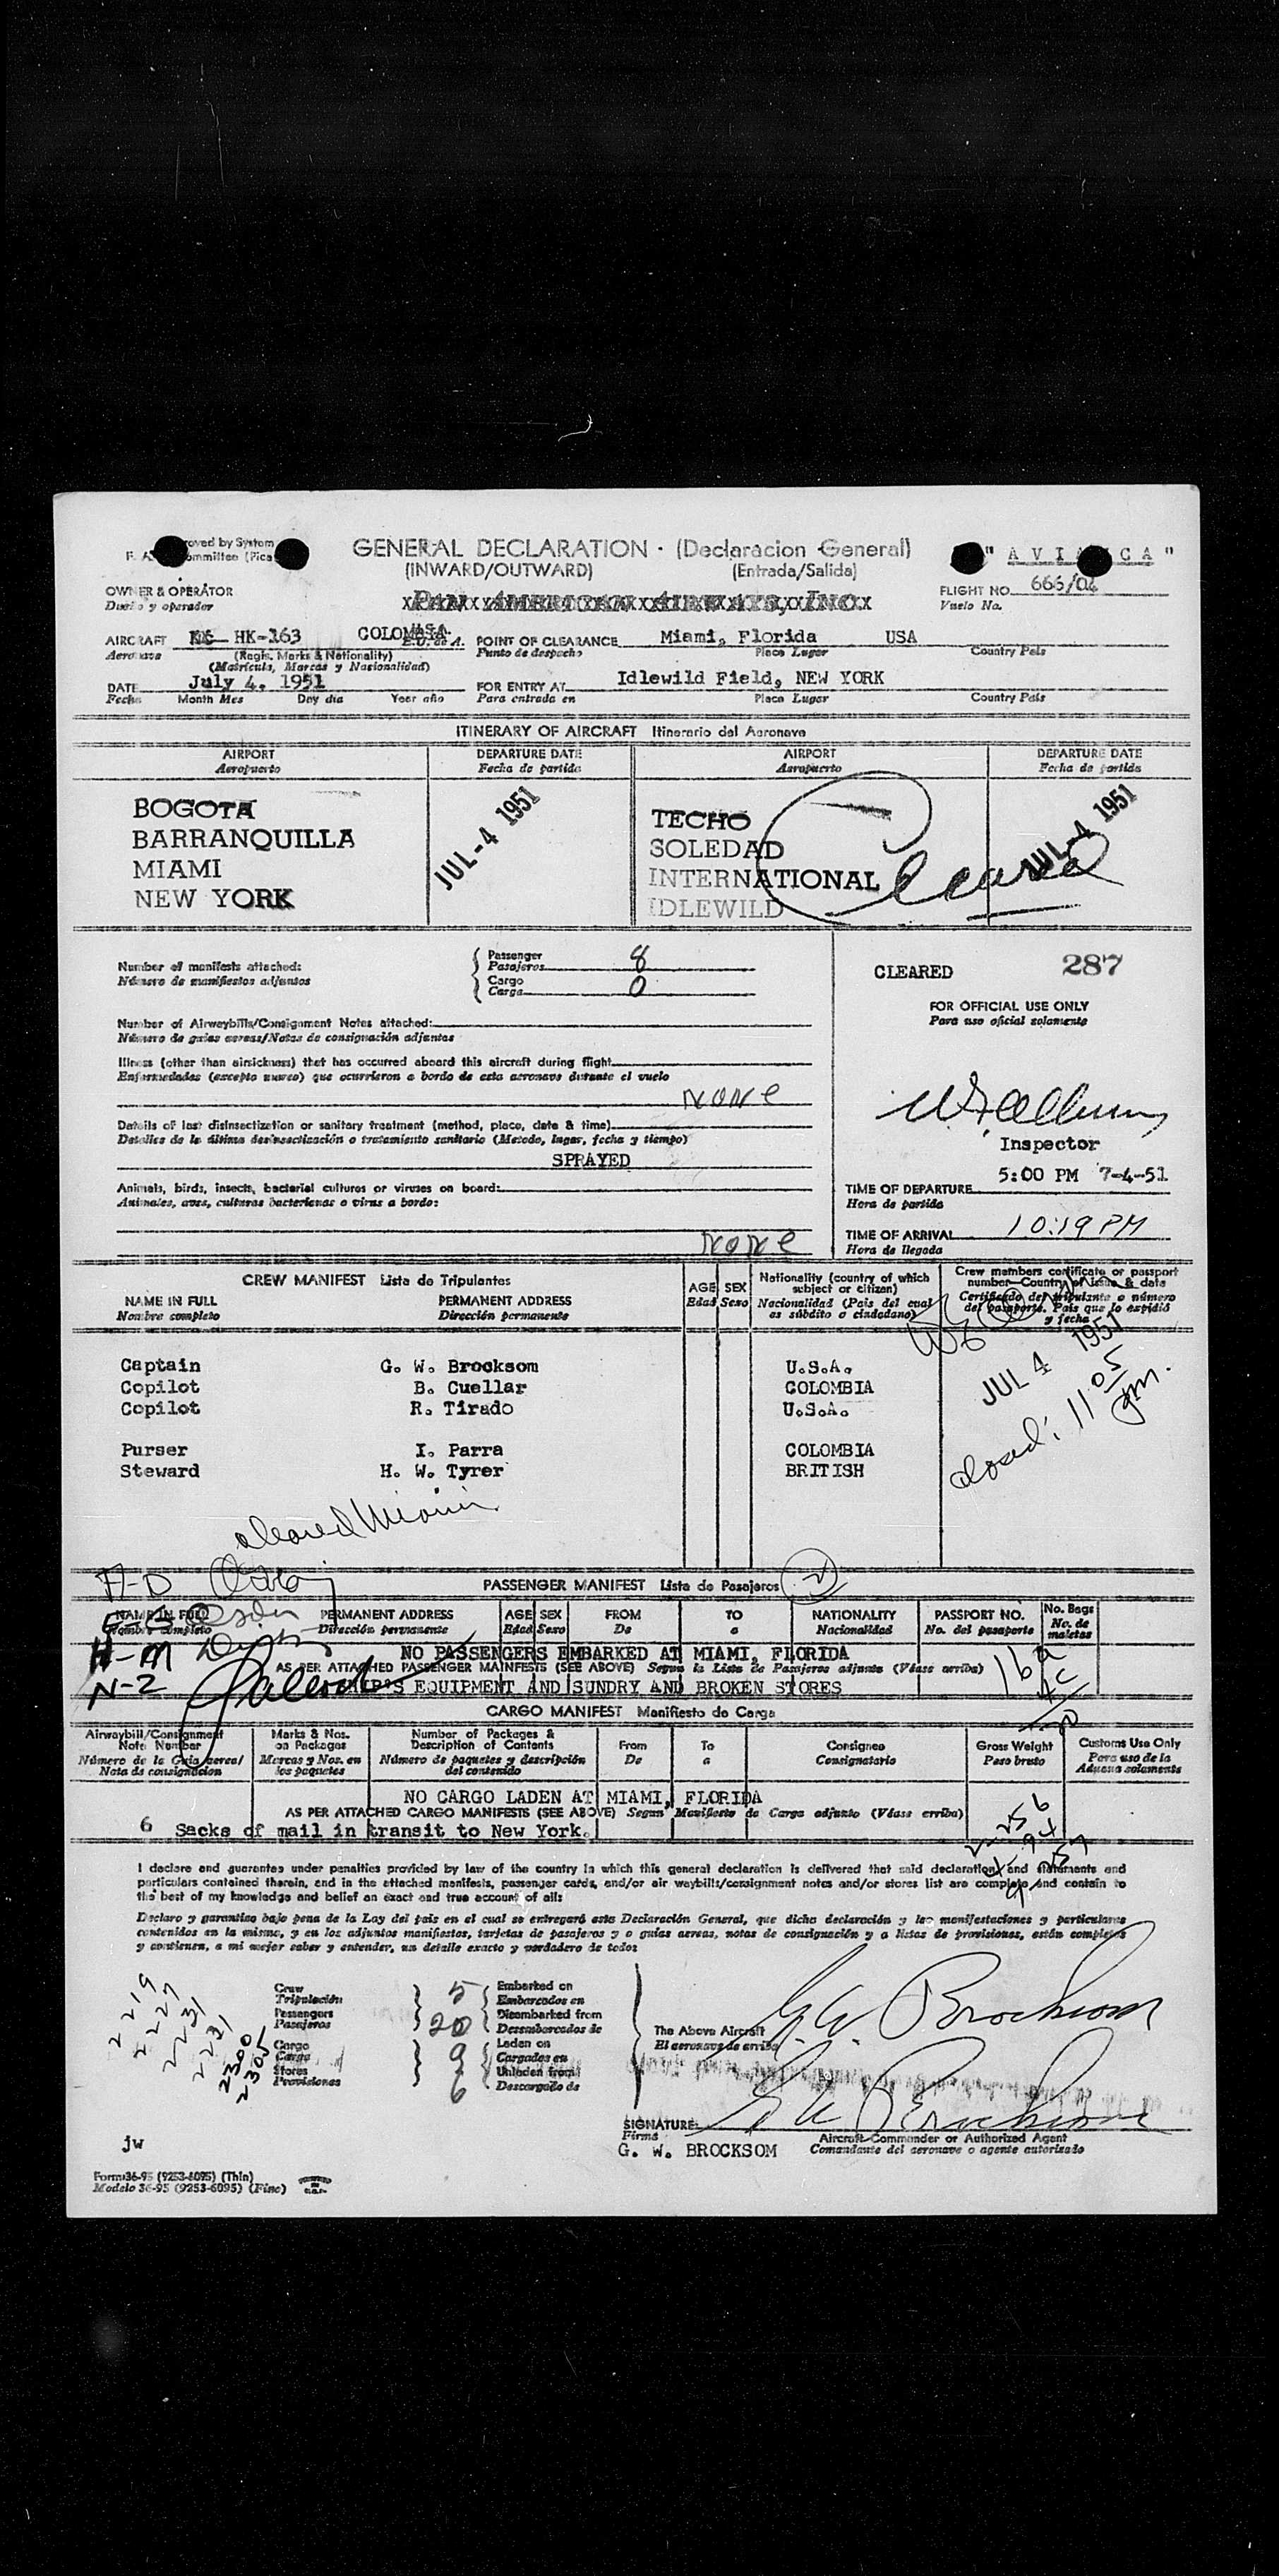 roved by System
ommittee
GENERAL DECLARATION - (Declaracion General)
(INWARD/OUTWARD) (Entrada/Salida)
" A V I A N C A "
OWNER & OPERATOR
Dueño y operador
PAN AMERICAN AIRWAYS, INC
FLIGHT NO. 666/04
Vuelo No.
AIRCRAFT HK-163 COLOMBIA
Aeronave (Regis. Marks & Nationality)
(Matrícula, Marcas y Nacionalidad)
POINT OF CLEARANCE Miami, Florida USA
Punto de despacho Place Lugar Country País
DATE July 4. 1951
Fecha Month Mes Day día Year año
FOR ENTRY AT Idlewild Field, NEW YORK
Para entrada en Place Lugar Country País
ITINERARY OF AIRCRAFT Itinerario del Aeronave
AIRPORT DEPARTURE DATE AIRPORT DEPARTURE DATE
Aeropuerto Fecha de partida Aeropuerto Fecha de partida
BOGOTA JUL-4 1951 TECHO JUL-4 1951
BARRANQUILLA SOLEDAD
MIAMI INTERNATIONAL
NEW YORK IDLEWILD
Cleared
Number of manifests attached:
Número de manifiestos adjuntos
Passenger
Pasajeros 8
Cargo
Carga 0
CLEARED 287
FOR OFFICIAL USE ONLY
Para uso oficial solamente
Number of Airwaybills/Consignment Notes attached:
Número de guías aereas/Notas de consignación adjuntas
Illness (other than airsickness) that has occurred aboard this aircraft during flight
Enfermedades (excepto mareo) que ocurrieron a bordo de esta aeronave durante el vuelo
None
Details of last disinsectization or sanitary treatment (method, place, date & time)
Detalles de la última desinsectización o tratamiento sanitario (Metodo, lugar, fecha y tiempo)
SPRAYED
Animals, birds, insects, bacterial cultures or viruses on board:
Animales, aves, culturas bacterianas o virus a bordo:
None
Inspector
5:00 PM 7-4-51
TIME OF DEPARTURE
Hora de partida
TIME OF ARRIVAL 10:19 PM
Hora de llegada
CREW MANIFEST Lista de Tripulantes
NAME IN FULL PERMANENT ADDRESS
Nombre completo Dirección permanente
AGE SEX
Edad Sexo
Nationality (country of which
subject or citizen)
Nacionalidad (País del cual
es súbdito o ciudadano)
Crew members certificate or passport
number—Country of issue & date
Certificado del tripulante o número
del pasaporte. País que lo expidió
y fecha
JUL 4 1951
Captain G. W. Brocksom U.S.A.
Copilot B. Cuellar COLOMBIA
Copilot R. Tirado U.S.A.
Purser I. Parra COLOMBIA
Steward H. W. Tyrer BRITISH
11:05 pm.
cleared Miami
PASSENGER MANIFEST Lista de Pasajeros
NAME IN FULL PERMANENT ADDRESS AGE SEX FROM TO NATIONALITY PASSPORT NO. No. Bags
Nombre completo Dirección permanente Edad Sexo De a Nacionalidad No. del pasaporte No. de maletas
H-M
N-2
NO PASSENGERS EMBARKED AT MIAMI, FLORIDA
AS PER ATTACHED PASSENGER MAINFESTS (SEE ABOVE) Segun la Lista de Pasajeros adjunta (Véase arriba)
EQUIPMENT AND SUNDRY AND BROKEN STORES
CARGO MANIFEST Manifiesto de Carga
Airwaybill/Consignment
Note Number
Número de la Guía aerea/
Nota de consignacion
Marks & Nos.
on Packages
Marcas y Nos. en
los paquetes
Number of Packages &
Description of Contents
Número de paquetes y descripción
del contenido
From
De
To
a
Consignee
Consignatario
Gross Weight
Peso bruto
Customs Use Only
Para uso de la
Aduana solamente
NO CARGO LADEN AT MIAMI, FLORIDA
AS PER ATTACHED CARGO MANIFESTS (SEE ABOVE) Segun Manifiesto de Carga adjunto (Véase arriba)
6 Sacks of mail in transit to New York.
I declare and guarantee under penalties provided by law of the country in which this general declaration is delivered that said declaration and statements and
particulars contained therein, and in the attached manifests, passenger cards, and/or air waybills/consignment notes and/or stores list are complete and contain to
the best of my knowledge and belief an exact and true account of all:
Declaro y garantizo bajo pena de la Ley del país en el cual se entregará esta Declaración General, que dicha declaración y las manifestaciones y particulares
contenidos en la misma, y en los adjuntos manifiestos, tarjetas de pasajeros y o guías aereas, notas de consignación y o listas de provisiones, están completas
y contienen, a mi mejor saber y entender, un detalle exacto y verdadero de todos
2219
2227
2231
2231
2300
2305
Crew
Tripulación 5
Passengers
Pasajeros 20
Cargo
Carga 9
Stores
Provisiones 6
Embarked on
Embarcados en
Disembarked from
Desembarcados de
Laden on
Cargados en
Unladen from
Descargado de
The Above Aircraft
El aeronave de arriba
G. W. Brocksom
SIGNATURE
Firma
G. W. Brocksom
G. W. BROCKSOM
Aircraft Commander or Authorized Agent
Comandante del aeronave o agente autorizado
jw
Form 36-95 (9253-6095) (Thin)
Modelo 36-95 (9253-6095) (Fino)